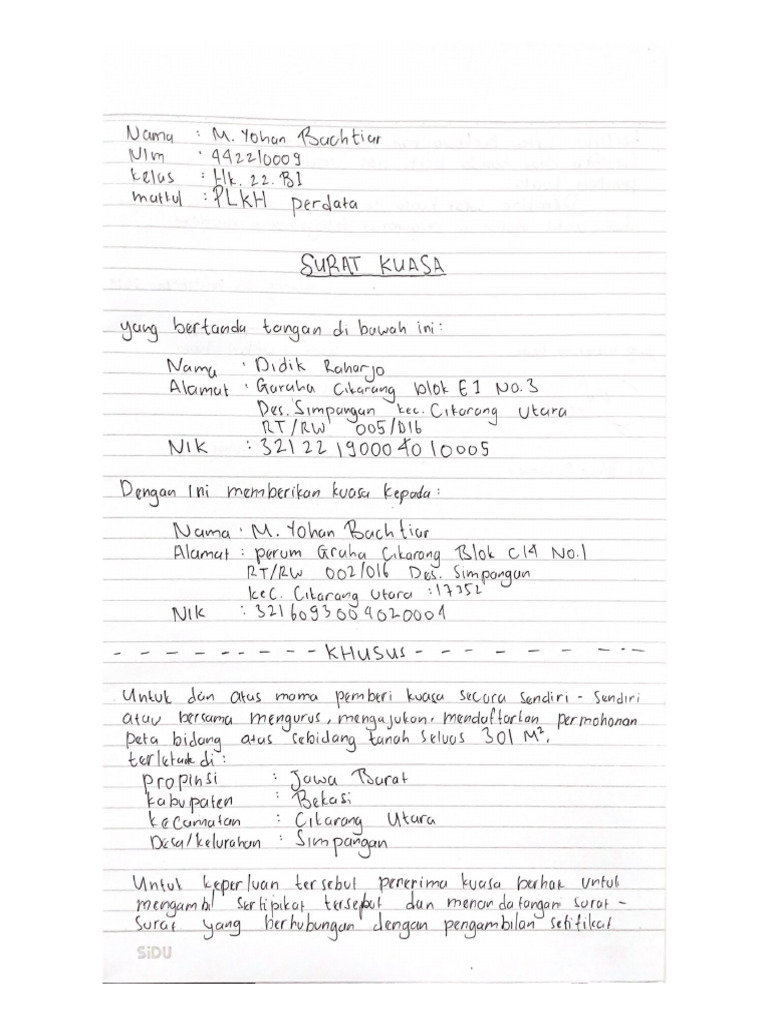 Nama : M. Yohan Bachtiar
NIm : 442210009
kelas : Hk. 22. B1
matkul : PLKH perdata
SURAT KUASA
yang bertanda tangan di bawah ini :
Nama : Didik Raharjo
Alamat : Garaha Cikarang blok E1 No. 3
Des. Simpangan kec. Cikarang Utara
RT/RW 005/016
NIK : 32122190004010005
Dengan Ini memberikan kuasa kepada :
Nama : M. Yohan Bachtiar
Alamat : perum Graha Cikarang Blok C14 No.1
RT/RW 002/016 Des. Simpangan
kec. Cikarang Utara : 17352
NIK : 3216093004020004
- - - - - - - - - KHUSUS - - - - - - - - - -
Untuk dan atas nama pemberi kuasa secara sendiri - sendiri
atau bersama mengurus, mengajukan, mendaftarkan permohonan
peta bidang atas sebidang tanah seluas 301 M²,
terletak di :
propinsi : Jawa Barat
kabupaten : Bekasi
kecamatan : Cikarang Utara
Desa/kelurahan : Simpangan
Untuk keperluan tersebut penerima kuasa berhak untuk
mengambil sertipikat tersebut dan menandatangani surat -
surat yang berhubungan dengan pengambilan setifikat
SiDU